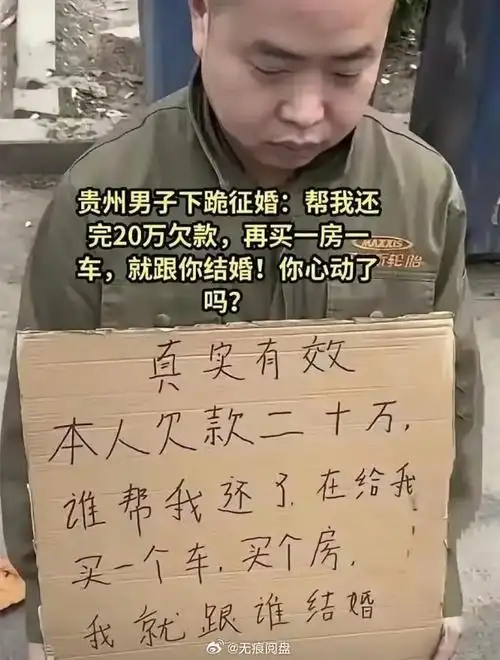 贵州男子下跪征婚：帮我还
完20万欠款，再买一房一
车，就跟你结婚！你心动了
吗？
MAXXIS
轮胎
真实有效
本人欠款二十万，
谁帮我还了.在给我
买一个车.买个房，
我就跟谁结婚
@无痕阅盘